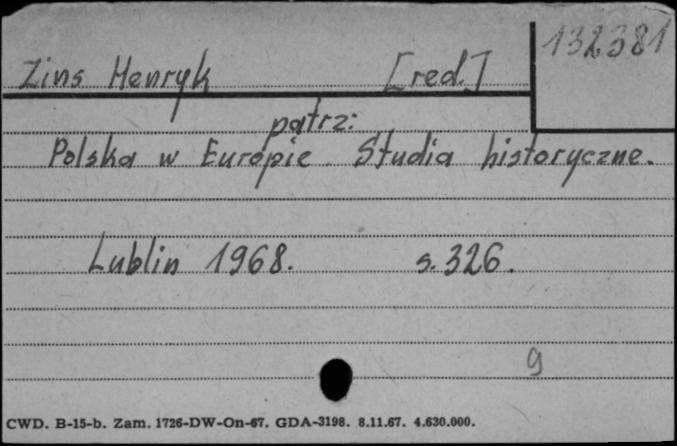 132381
Zins Henryk [red.]
patrz:
Polska w Europie. Studia historyczne.
Lublin 1968. s. 326.
9
CWD. B-15-b. Zam. 1726-DW-On-67. GDA-3198. 8.11.67. 4.630.000.